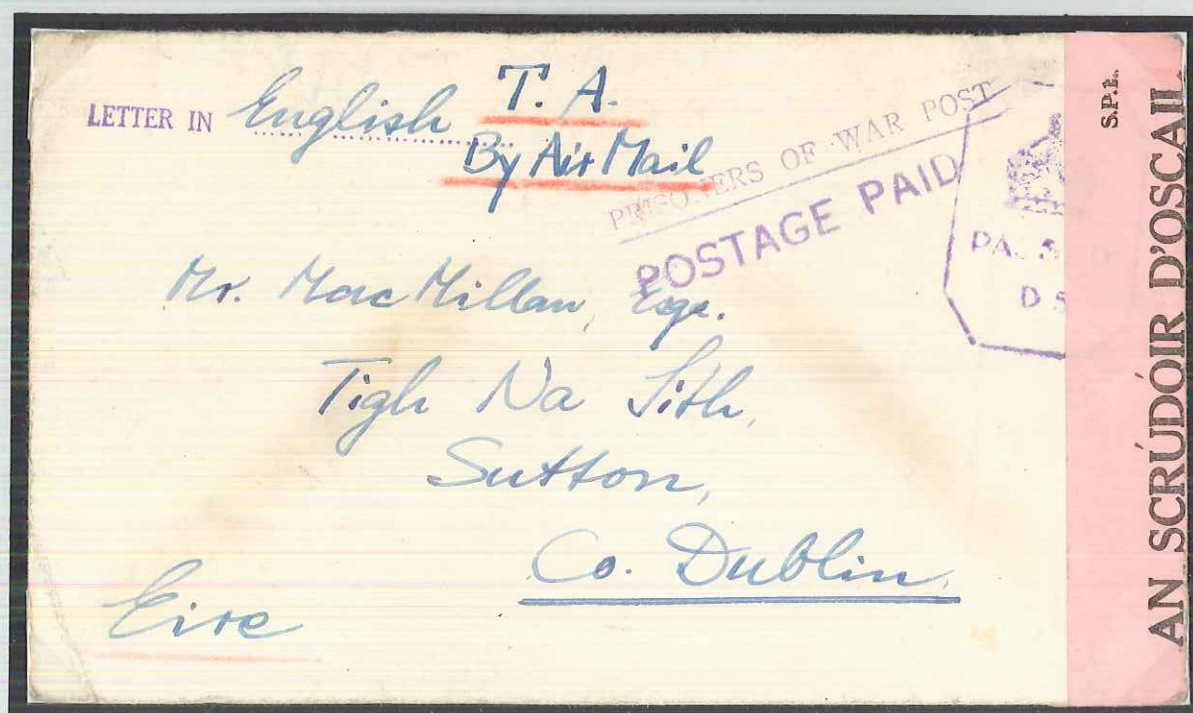 LETTER IN English T. A.
By Air Mail
PRISONERS OF WAR POST
POSTAGE PAID
Mr. Mac Millan, Esqr.
Tigh Na Sith,
Sutton,
Co. Dublin.
Eire
S.P.L.
AN SCRÚDÓIR D'OSCAIL